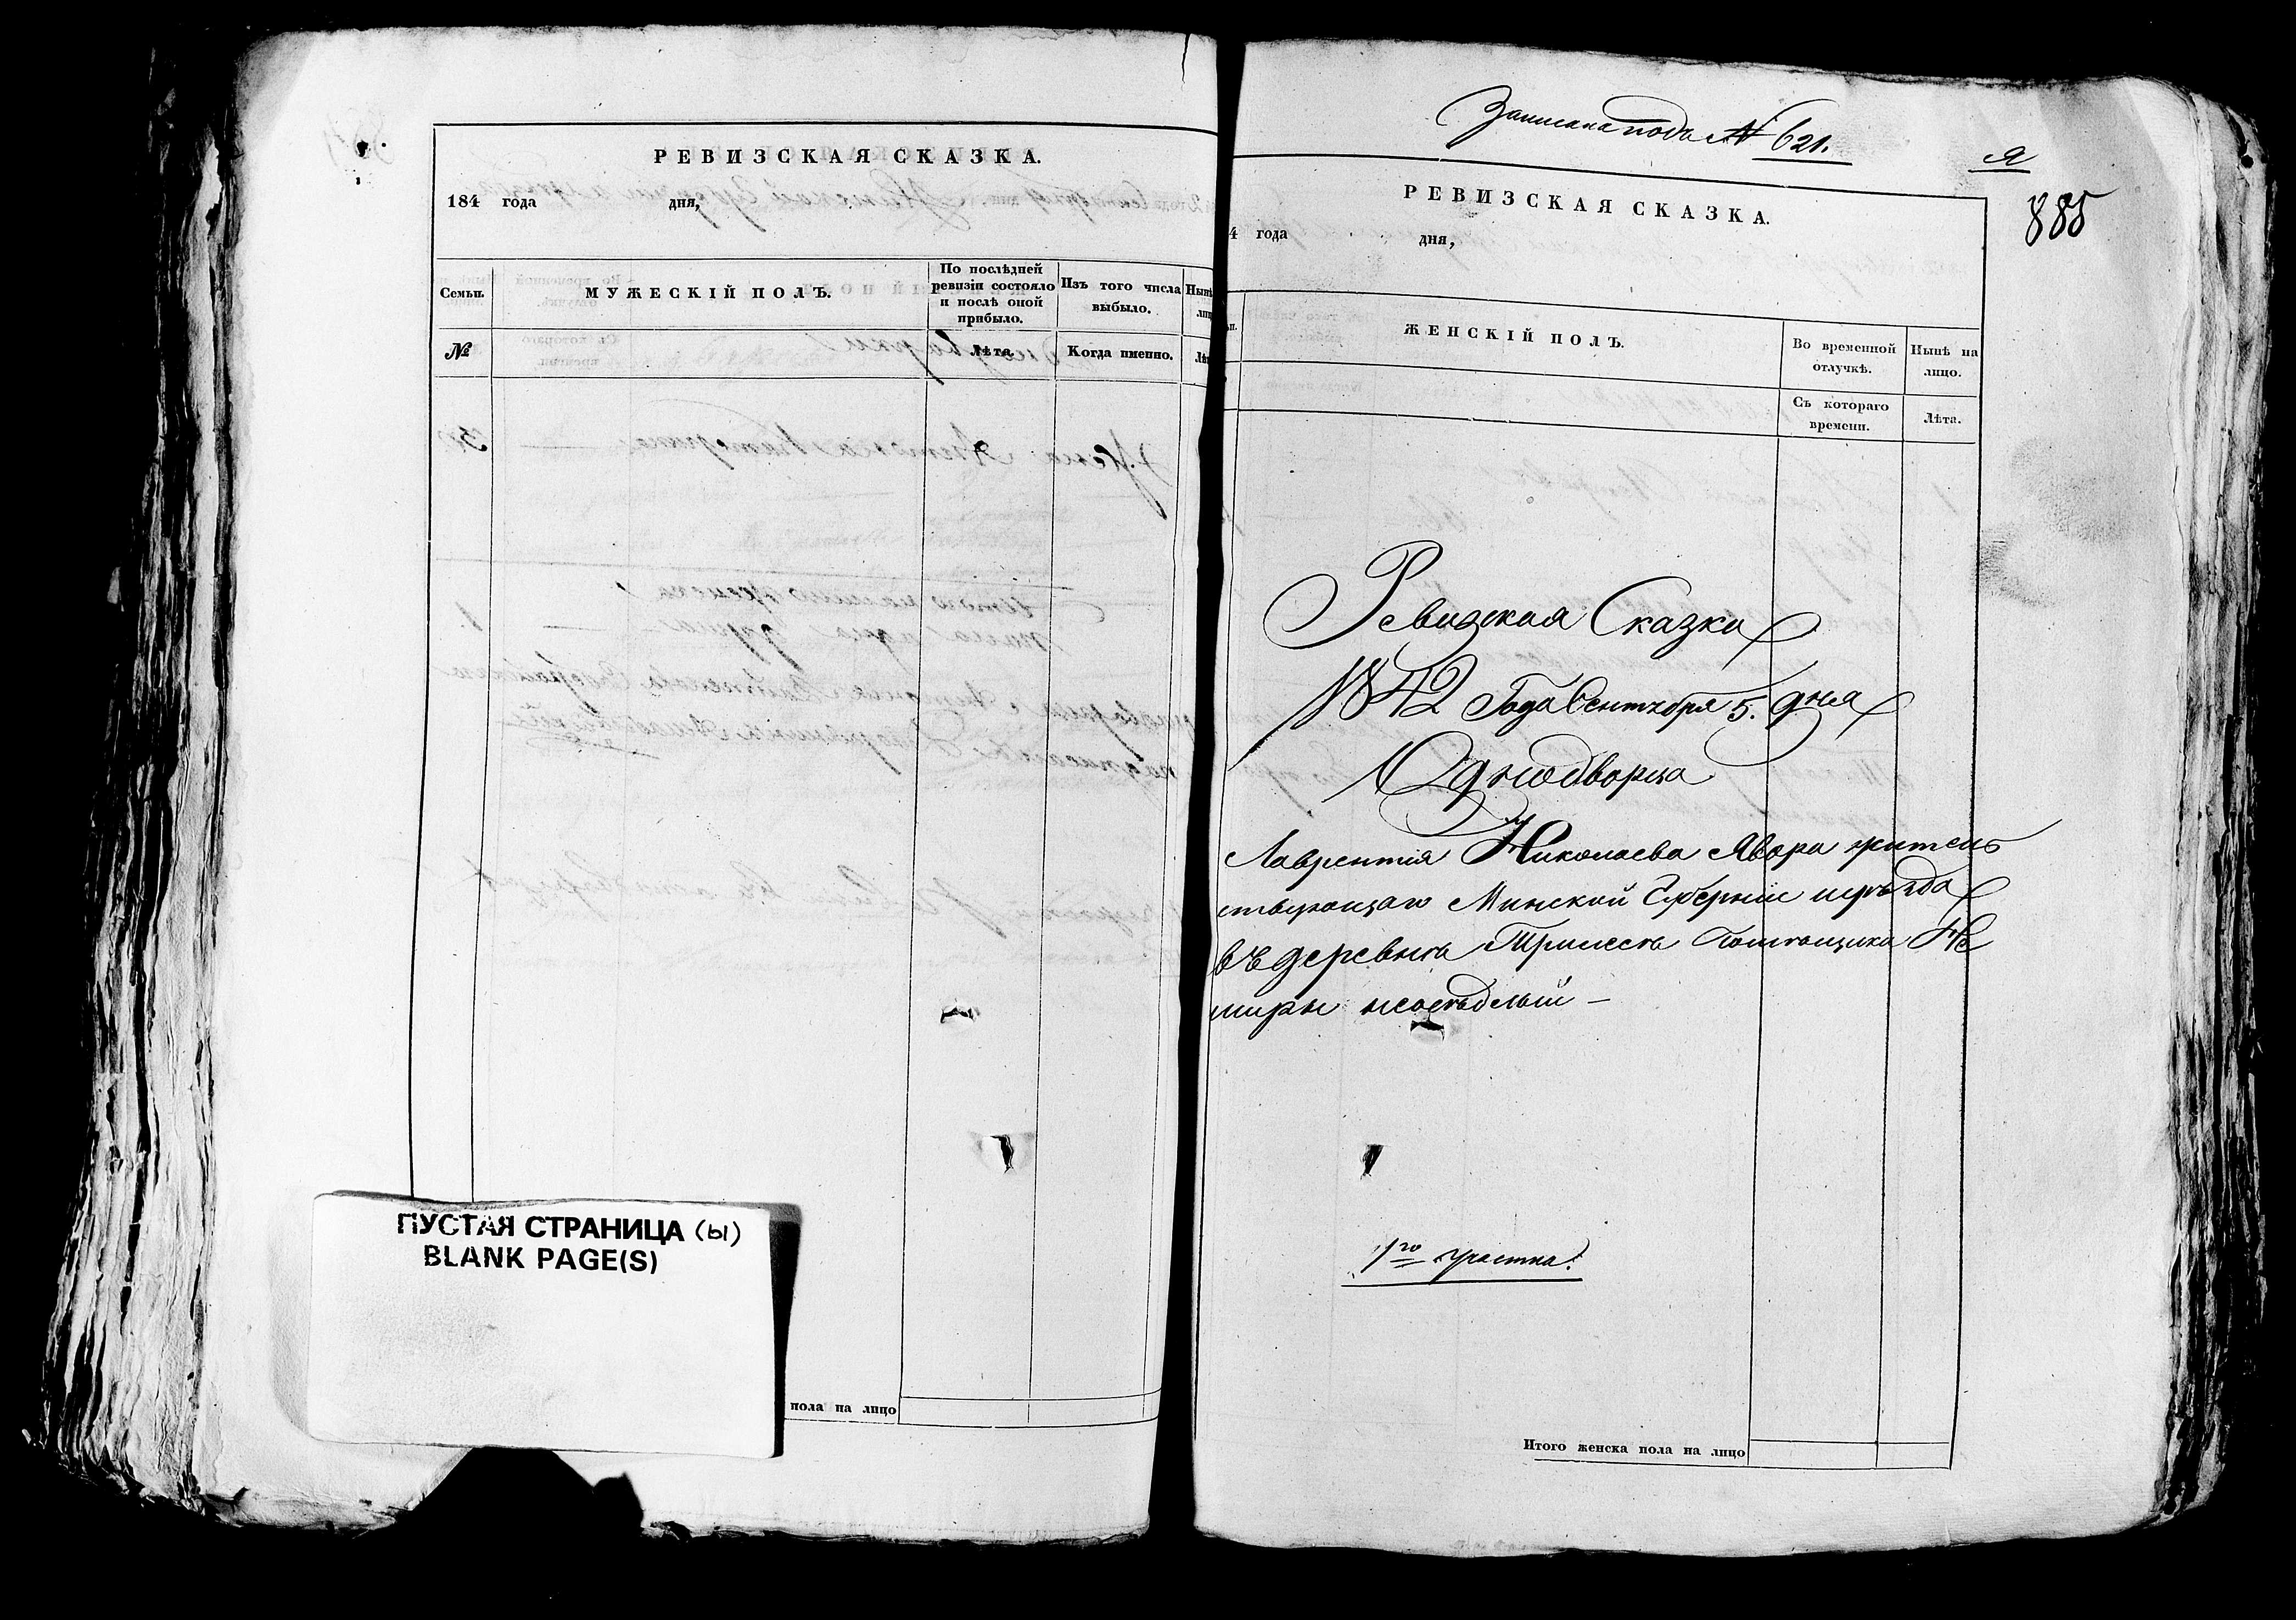 РЕВИЗСКАЯ СКАЗКА.
184 года дня,
Семьи. МУЖЕСКІЙ ПОЛЪ. По послѣдней ревизіи состояло и послѣ оной прибыло. Изъ того числа выбыло.
№ Лѣта. Когда именно.
ПУСТАЯ СТРАНИЦА (ы)
BLANK PAGE(S)
пола на лицо
Записана подъ № 621.
Я
885
РЕВИЗСКАЯ СКАЗКА.
4 года дня,
ЖЕНСКІЙ ПОЛЪ. Во временной отлучкѣ. Нынѣ на лицо.
Съ котораго времени. Лѣта.
Ревизская Сказка
1842 Года Сентября 5. дня
Однодворца
Лаврентія Николаева Явора житель
ствующаго Минской Губерніи иуѣзда
въ деревнѣ помѣщика
неосѣдлый —
1го участка.
Итого женска пола на лицо